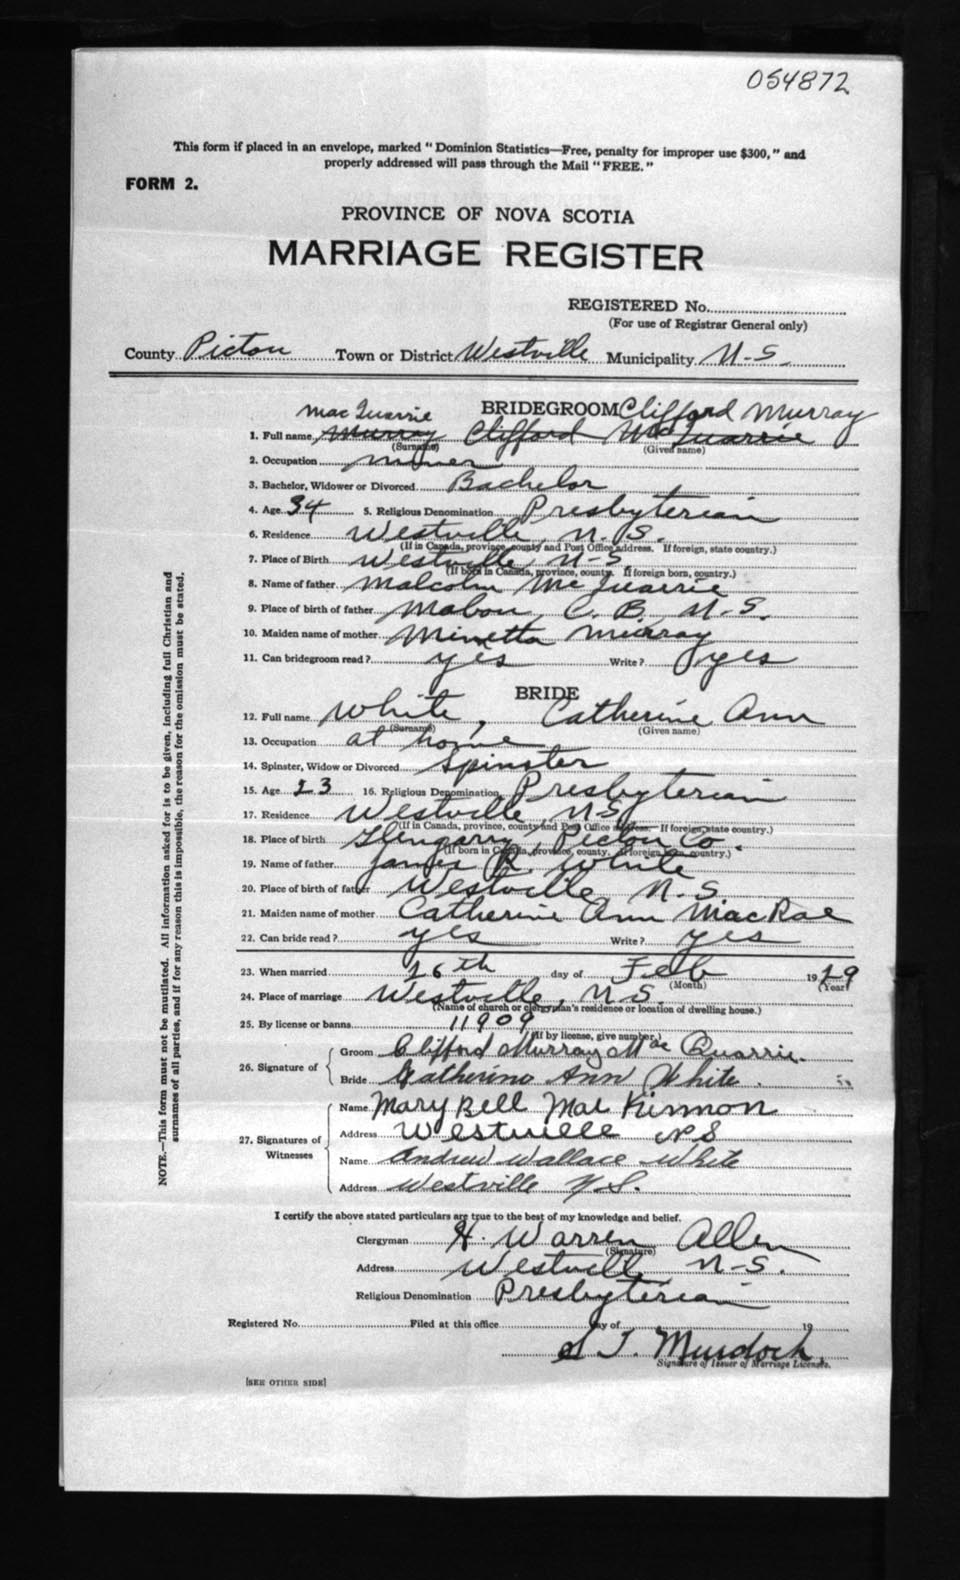 054872
This form if placed in an envelope, marked "Dominion Statistics—Free, penalty for improper use $300," and
properly addressed will pass through the Mail "FREE."
FORM 2.
PROVINCE OF NOVA SCOTIA
MARRIAGE REGISTER
REGISTERED No.
(For use of Registrar General only)
County Pictou Town or District Westville Municipality N-S
BRIDEGROOM Clifford Murray
MacQuarrie
1. Full name Murray Clifford McQuarrie
(Surname) (Given name)
2. Occupation miner
3. Bachelor, Widower or Divorced Bachelor
4. Age 34 5. Religious Denomination Presbyterian
6. Residence Westville, N.S.
(If in Canada, province, county and Post Office address. If foreign, state country.)
7. Place of Birth Westville, N-S
(If born in Canada, province, county. If foreign born, country.)
8. Name of father Malcolm McQuarrie
9. Place of birth of father Mabou, C.B. N.S.
10. Maiden name of mother Minetta Murray
11. Can bridegroom read? yes Write? yes
BRIDE
12. Full name White, Catherine Ann
(Surname) (Given name)
13. Occupation at home
14. Spinster, Widow or Divorced Spinster
15. Age 23 16. Religious Denomination Presbyterian
17. Residence Westville, N.S.
(If in Canada, province, county and Post Office address. If foreign, state country.)
18. Place of birth Glengarry, Pictou Co.
(If born in Canada, province, county. If foreign born, country.)
19. Name of father James R. White
20. Place of birth of father Westville N.S.
21. Maiden name of mother Catherine Ann MacRae
22. Can bride read? yes Write? yes
23. When married 26th day of Feb 1929
(Month) (Year)
24. Place of marriage Westville, N.S.
(Name of church or clergyman's residence or location of dwelling house.)
25. By license or banns 11909
(If by license, give number.)
26. Signature of Groom Clifford Murray MacQuarrie
Bride Catherine Ann White.
27. Signatures of Witnesses Name Mary Bell MacKinnon
Address Westville NS
Name Andrew Wallace White
Address Westville N.S.
I certify the above stated particulars are true to the best of my knowledge and belief.
Clergyman H. Warren Allen
(Signature)
Address Westville N-S.
Religious Denomination Presbyterian
Registered No. Filed at this office day of 19
Murdoch
Signature of Issuer of Marriage Licenses.
[SEE OTHER SIDE]
NOTE.—This form must not be mutilated. All information asked for is to be given, including full Christian and
surnames of all parties, and if for any reason this is impossible, the reason for the omission must be stated.